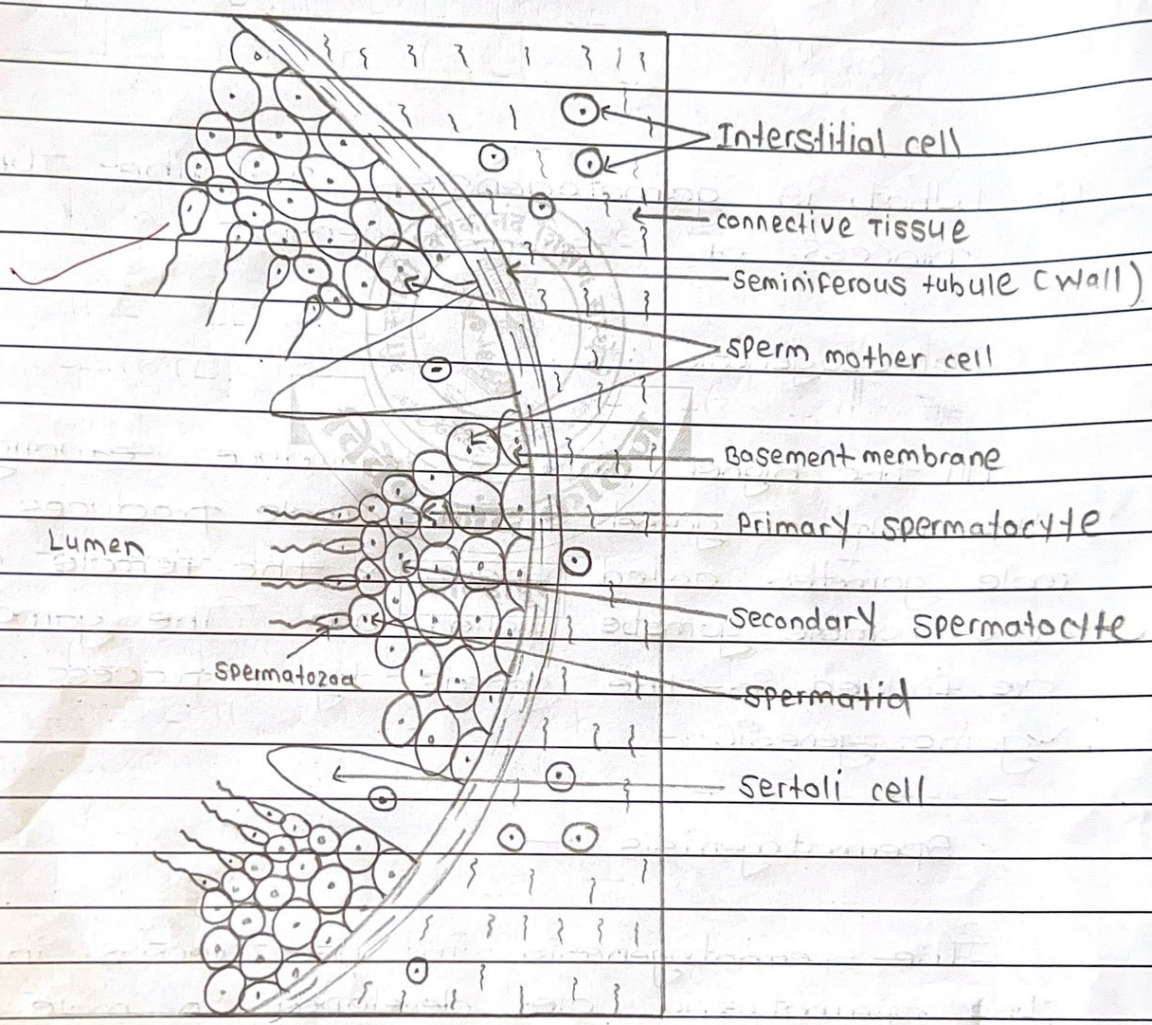 Interstitial cell
connective Tissue
Seminiferous tubule (wall)
sperm mother cell
Basement membrane
Primary spermatocyte
Lumen
Secondary spermatocyte
Spermatozoa
spermatid
Sertoli cell